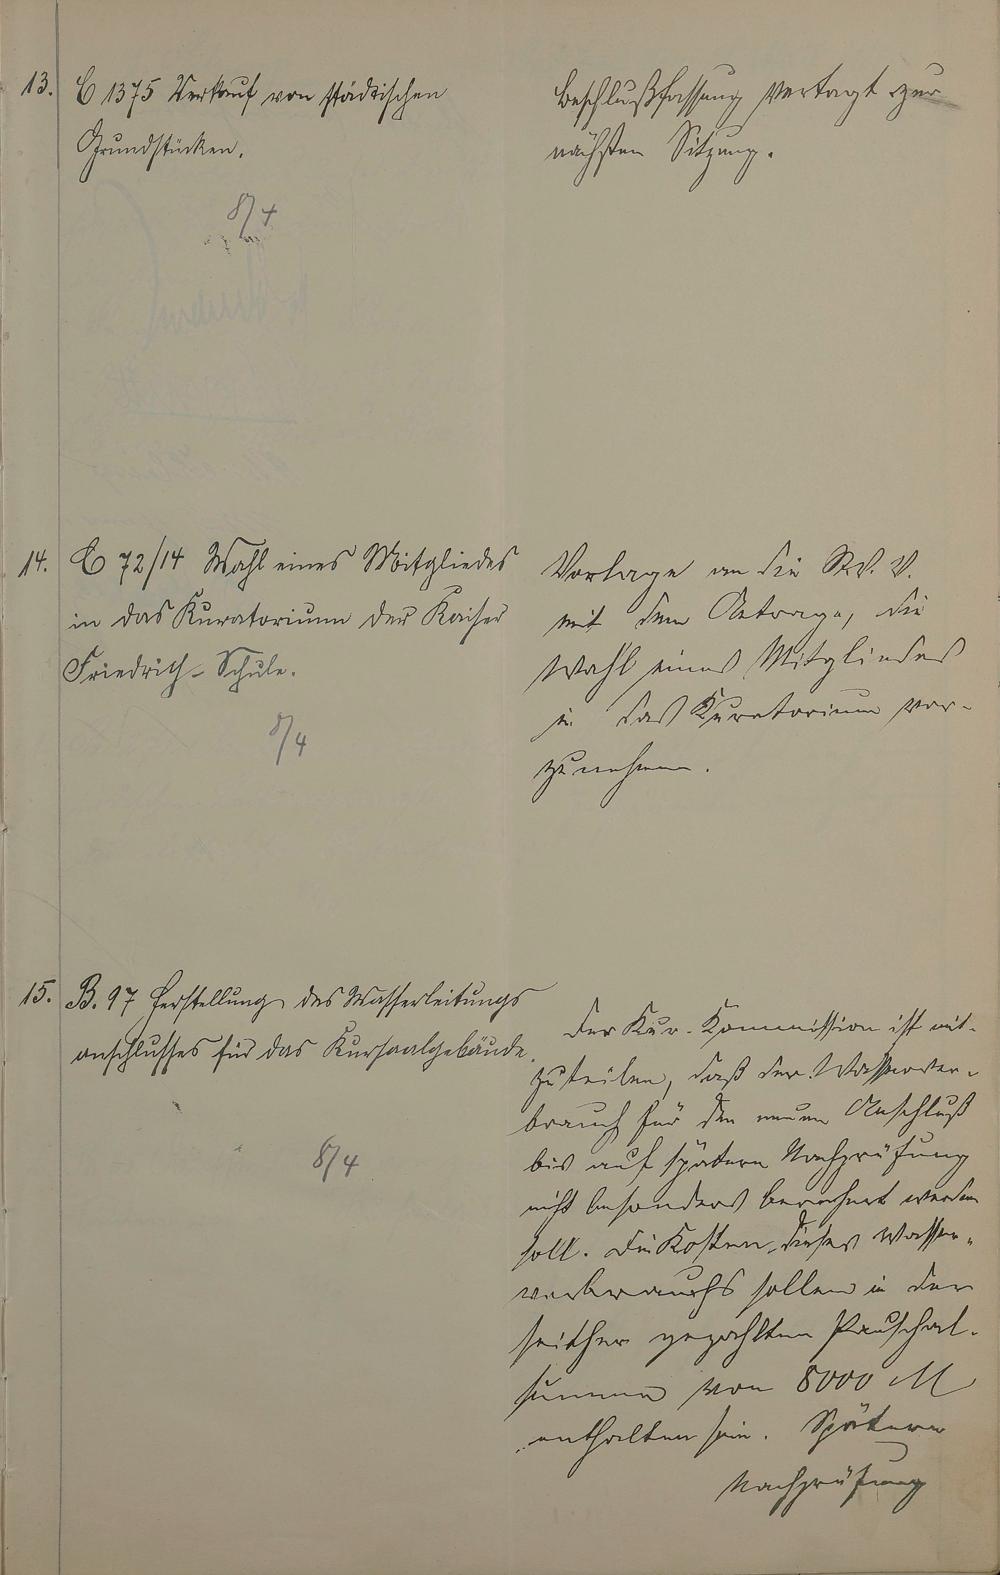 13.
C 1375 Verkauf von städtischen
Grundstücken.
8/4
Beschlußfassung vertagt zur
nächsten Sitzung.
14.
C 72/14 Wahl eines Mitgliedes
in das Kuratorium der Kaiser
Friedrich-Schule.
8/4
Vorlage an die St. V. V.
mit dem Antrage, die
Wahl eines Mitgliedes
in das Kuratorium vor-
zunehmen.
15.
B. 97 Herstellung des Wasserleitungs
anschlusses für das Kursaalgebäude.
8/4
Der Kur-Kommission ist mit-
zuteilen, daß der Wasserver-
brauch für den neuen Anschluß
bis auf spätere Nachprüfung
nicht besonders berechnet werden
soll. Die Kosten dieses Wasser-
verbrauchs sollen in der
seither gezahlten Pauschal-
summe von 8000 M
enthalten sein. Spätere
Nachprüfung